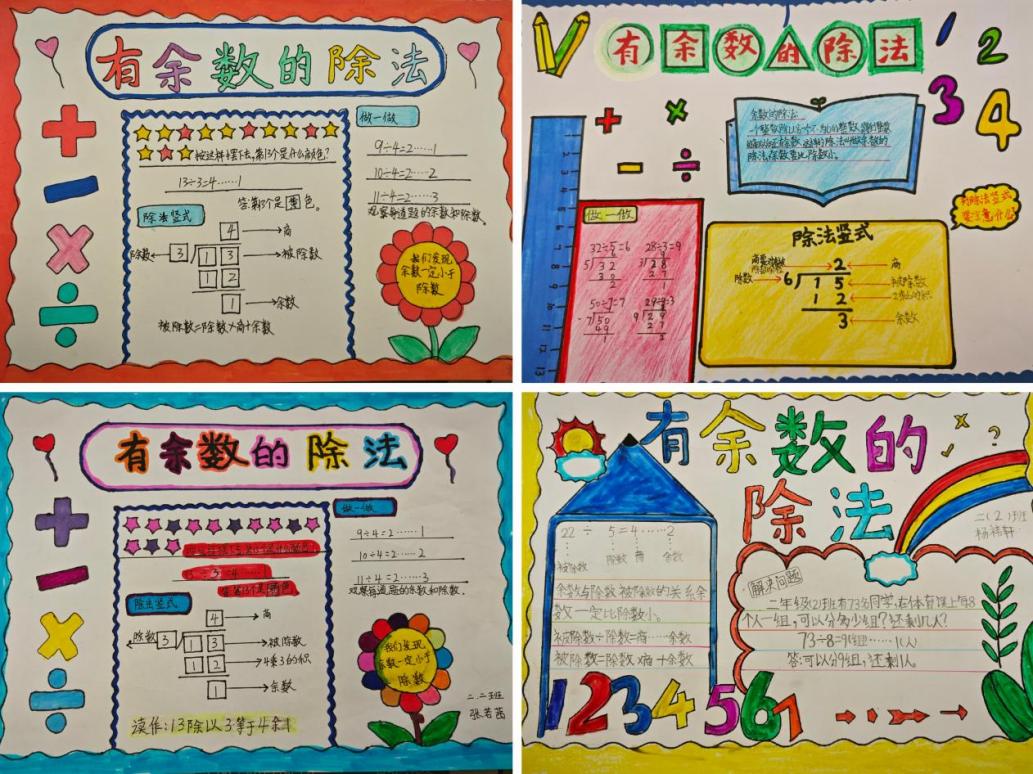 有余数的除法
做一做
按这样摆下去,第13个是什么颜色?
13÷3=4……1
答:第13个是黄色。
9÷4=2……1
10÷4=2……2
11÷4=2……3
观察每道题的余数和除数。
除法竖式
4→商
除数←3 13→被除数
12
1→余数
被除数=除数×商+余数
我们发现
余数一定小于
除数
有余数的除法
1
2
3
4
余数的除法
除法,余数要比除数小。
有除法竖式
要注意什么
做一做
32÷5=6
28÷3=9
50÷7=7
29÷9=3
除法竖式
2 商
除数 6 15 被除数
12
3 余数
有余数的除法
做一做
9÷4=2……1
10÷4=2……2
11÷4=2……3
观察每道题的余数和除数。
除法竖式
4→商
除数 3 13→被除数
12→4乘3的积
1→余数
我们发现
余数一定小于
除数
二.二班
张若茜
读作:13除以3等于4余1
有余数的
除法
二(2)班
杨禧轩
22÷5=4……2
被除数 除数 商 余数
余数与除数被除数的关系余
数一定比除数小。
被除数÷除数=商……余数
被除数=除数×商+余数
解决问题
二年级(2)班有73名同学,在体育课上每8
个人一组,可以分多少组?还剩几人?
73÷8=9(组)……1(人)
答:可以分9组,还剩1人。
1234567